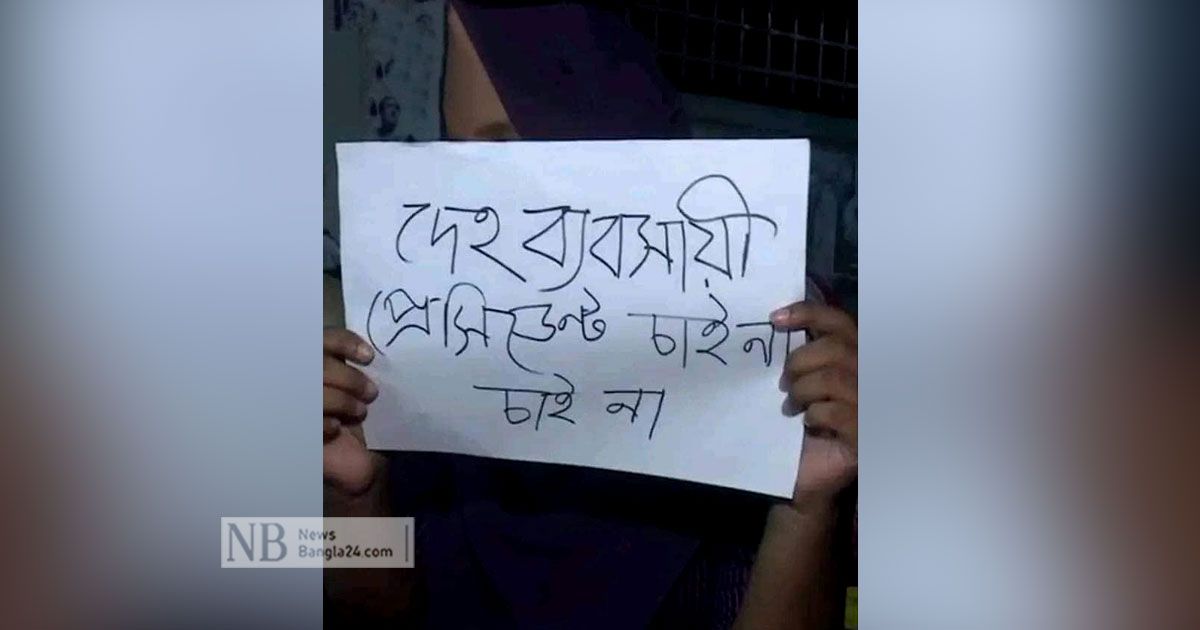 দেহ ব্যবসায়ী
প্রেসিডেন্ট চাই না
চাই না
NB News
Bangla24.com